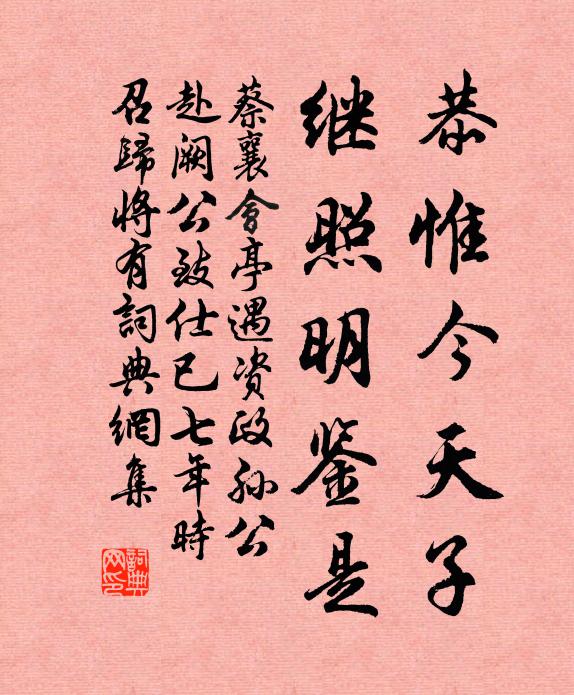 恭惟今天子
继照明鉴是
蔡襄會亭遇资政孙公
赴阙公致仕已七年時
召歸将有詞典網集
詞典网印